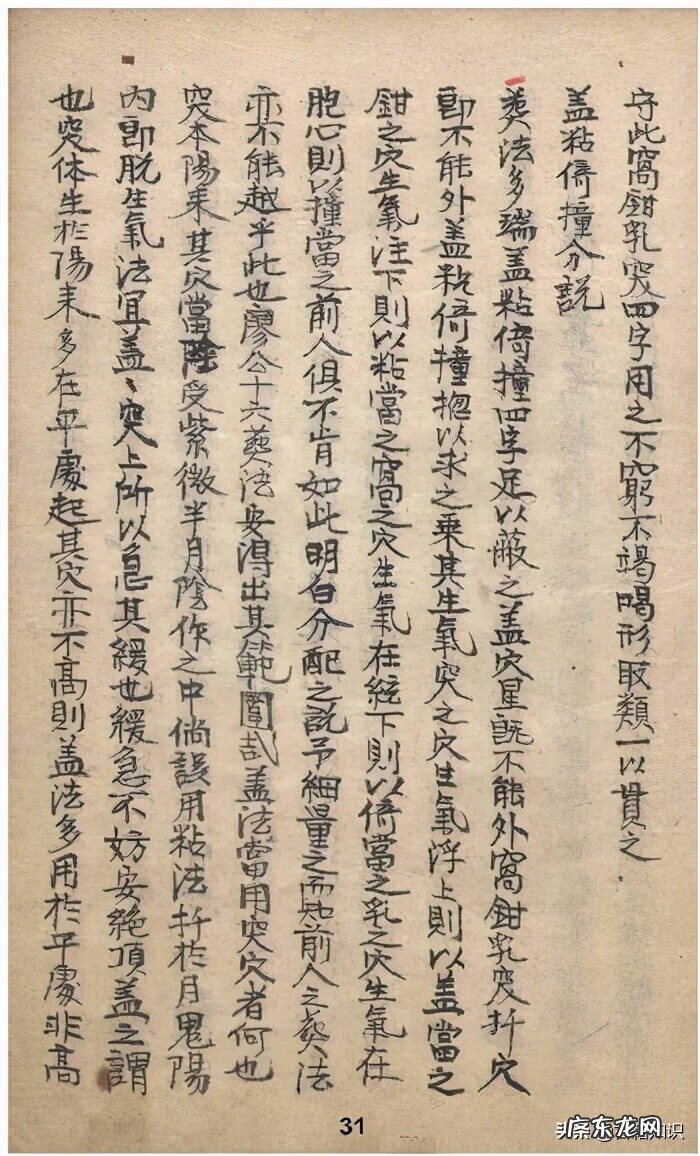 守此窩鉗乳突四字用之不窮不竭喝形取類一以貫之
盖粘倚撞分説
葬法多端盖粘倚撞四字足以蔽之盖穴星既不能外窩鉗乳突扦穴
即不能外盖粘倚撞揔以求之乗其生氣突之穴生氣浮上則以盖當之
鉗之穴生氣注下則以粘當之窩之穴生氣在絃下則以倚當之乳之穴生氣在
胞心則以撞當之前人俱不肯如此明白分配之説予細量之而知前人之葬法
亦不能越乎此也廖公十六葬法安得出其範圍哉盖法當用突穴者何也
突本陽来其穴當陰受紫微半月陰作之中倘誤用粘法扦於月鬼陽
内即脱生氣法宜盖、突上所以急其緩也緩急不妨安絶頂盖之謂
也突体生於陽来多在平處起其穴亦不高則盖法多用於平處非高
31
头条
知识
广东龙网